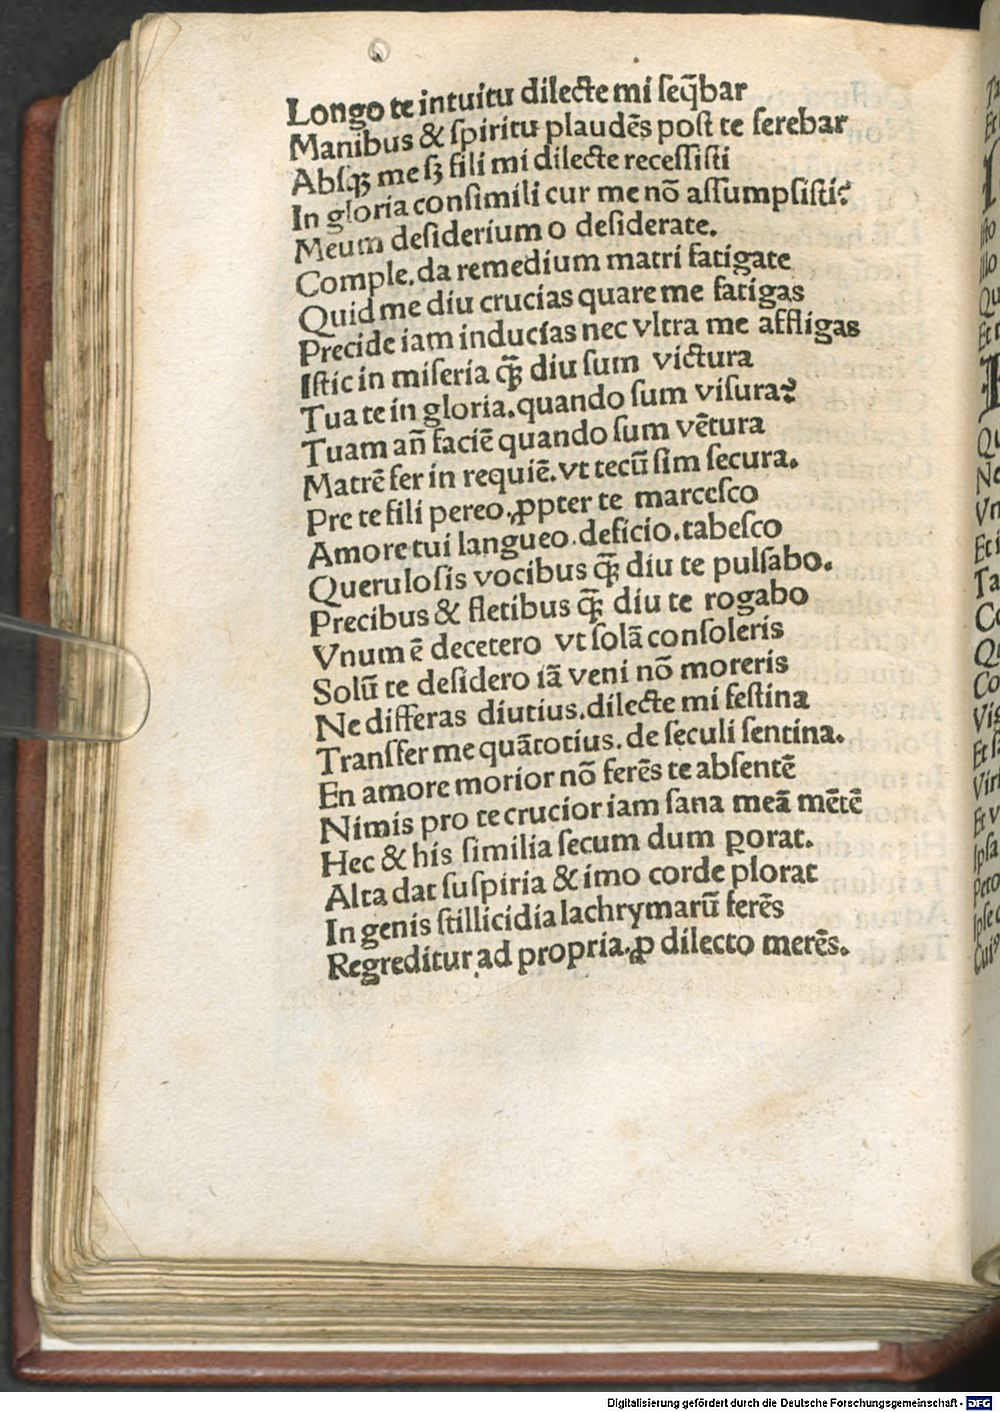 Longo te intuitu dilecte mi seq̃bar
Manibus & spiritu plaudẽs post te ferebar
Absqꝫ me sꝫ fili mi dilecte recessisti
In gloria consimili cur me nõ assumpsisti?
Meum desiderium o desiderate.
Comple. da remedium matri fatigate
Quid me diu crucias quare me fatigas
Precide iam inducias nec vltra me affligas
Istic in miseria q̃ꝫ diu sum victura
Tua te in gloria. quando sum visura?
Tuam añ faciẽ quando sum vẽtura
Matrẽ fer in requiẽ. vt tecũ sim secura.
Pre te fili pereo. ꝓpter te marcesco
Amore tui langueo. deficio. tabesco
Querulosis vocibus q̃ꝫ diu te pulsabo.
Precibus & fletibus q̃ꝫ diu te rogabo
Vnum ẽ decetero vt solã consoleris
Solũ te desidero iã veni nõ moreris
Ne differas diutius. dilecte mi festina
Transfer me quãtotius. de seculi sentina.
En amore morior nõ ferẽs te absentẽ
Nimis pro te crucior iam sana meã mẽtẽ
Hec & his similia secum dum ꝑorat.
Alta dat suspiria & imo corde plorat
In genis stillicidia lachrymarũ ferẽs
Regreditur ad propria. ꝓ dilecto merẽs.
Digitalisierung gefördert durch die Deutsche Forschungsgemeinschaft - DFG